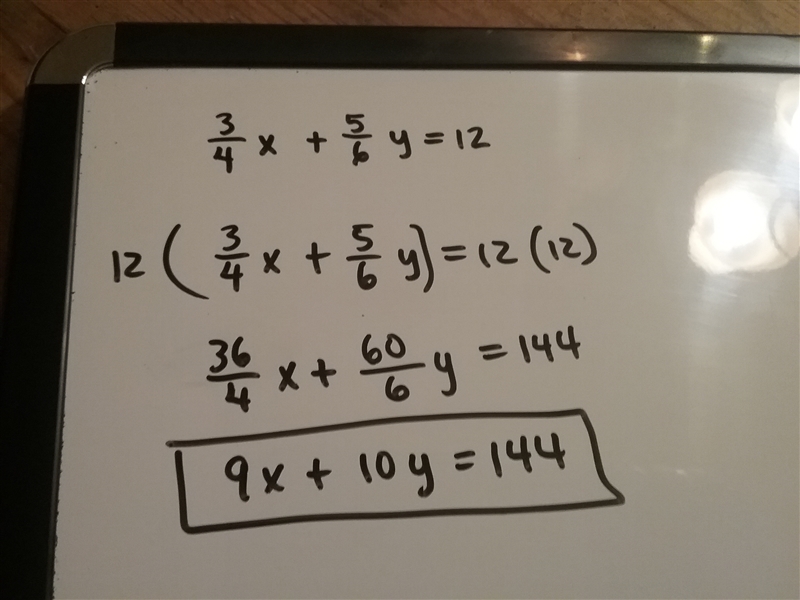 3/4 x + 5/6 y = 12
12 ( 3/4 x + 5/6 y ) = 12 (12)
36/4 x + 60/6 y = 144
9x + 10y = 144